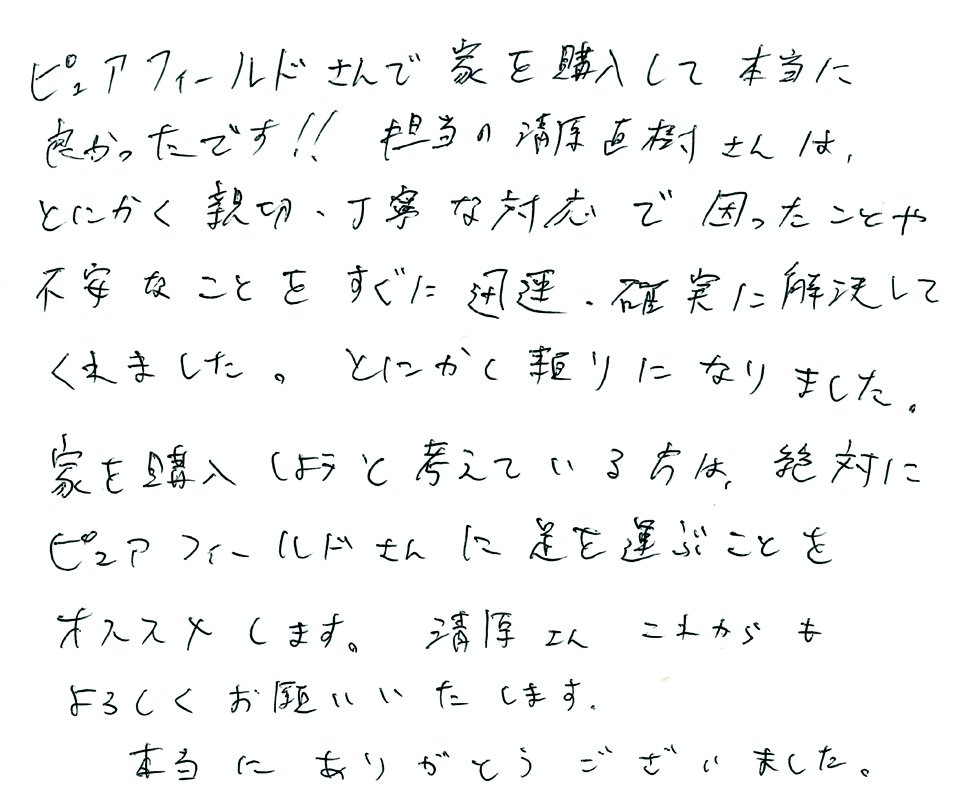 ピュアフィールドさんで家を購入して本当に
良かったです!! 担当の清原直樹さんは、
とにかく親切・丁寧な対応で困ったことや
不安なことをすぐに迅速・確実に解決して
くれました。とにかく頼りになりました。
家を購入しようと考えている方は、絶対に
ピュアフィールドさんに足を運ぶことを
オススメします。清原さんこれからも
よろしくお願いいたします。
本当にありがとうございました。